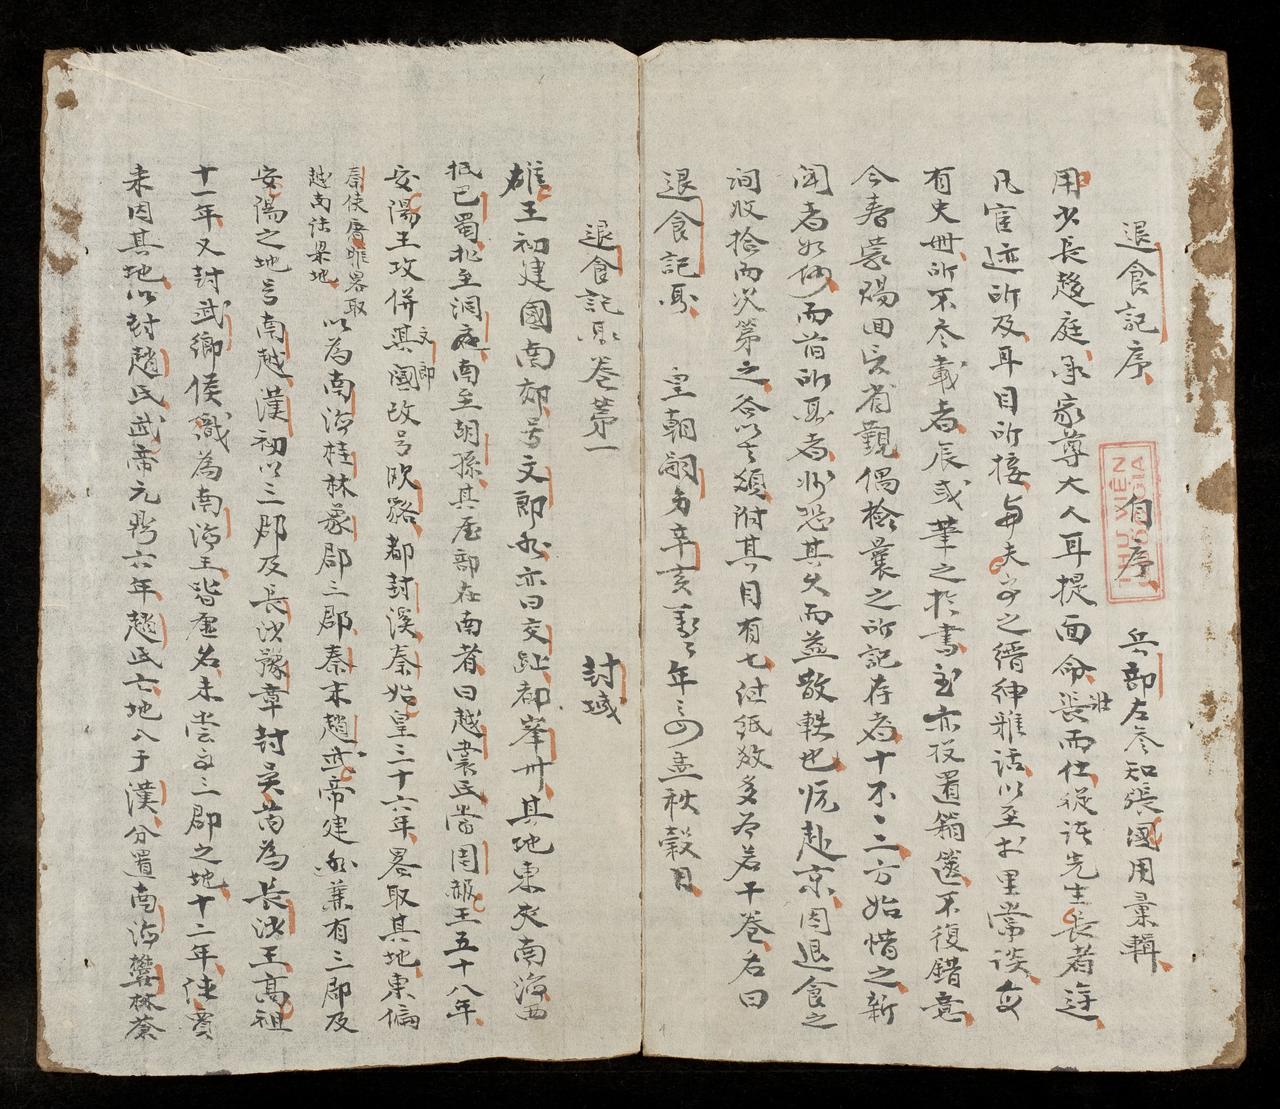 退食記序 自序 兵部左參知張國用彙輯
用少長趍庭承家尊大人耳提面命壯長而仕從諸先生長者遊
凡宦迹所及耳目所接与夫之縉紳雅話以至於里常談
有史冊所不尽載者辰或筆之於書亦投置箱篋不復錯意
今春蒙賜回省覲偶檢曩之所記存者十不二方始惜之新
聞者如何而前所者恐其久而益散軼也赴京因退食之
收拾次第之附其目有七紙多若干卷名曰
退食記聞 皇朝嗣德辛亥年孟秋穀日
退食記聞卷第一 封域
雄王初建國南郊号文郎亦曰交趾都峯州其地東夾南海西
抵巴蜀北至洞庭南至胡孫其屋部在南者曰越裳氏當周赧王五十八年
安陽王攻併文郎其國改号欧貉都封溪秦始皇三十六年畧取其地東偏
秦使屠睢畧取
越南陸梁地
以為南海桂林象郡三郡秦末趙武帝建兼有三郡及
安陽之地号南越漢初以三郡及長沙豫章封吳芮為長沙王高祖
十一年又封武鄉侯織為南海王皆虛名未尝有三郡之地十二年陸賈
来因其地以封趙氏武帝元鼎六年趙氏亡地入于漢分置南海欝林蒼
THƯ VIỆN
QUỐC GIA